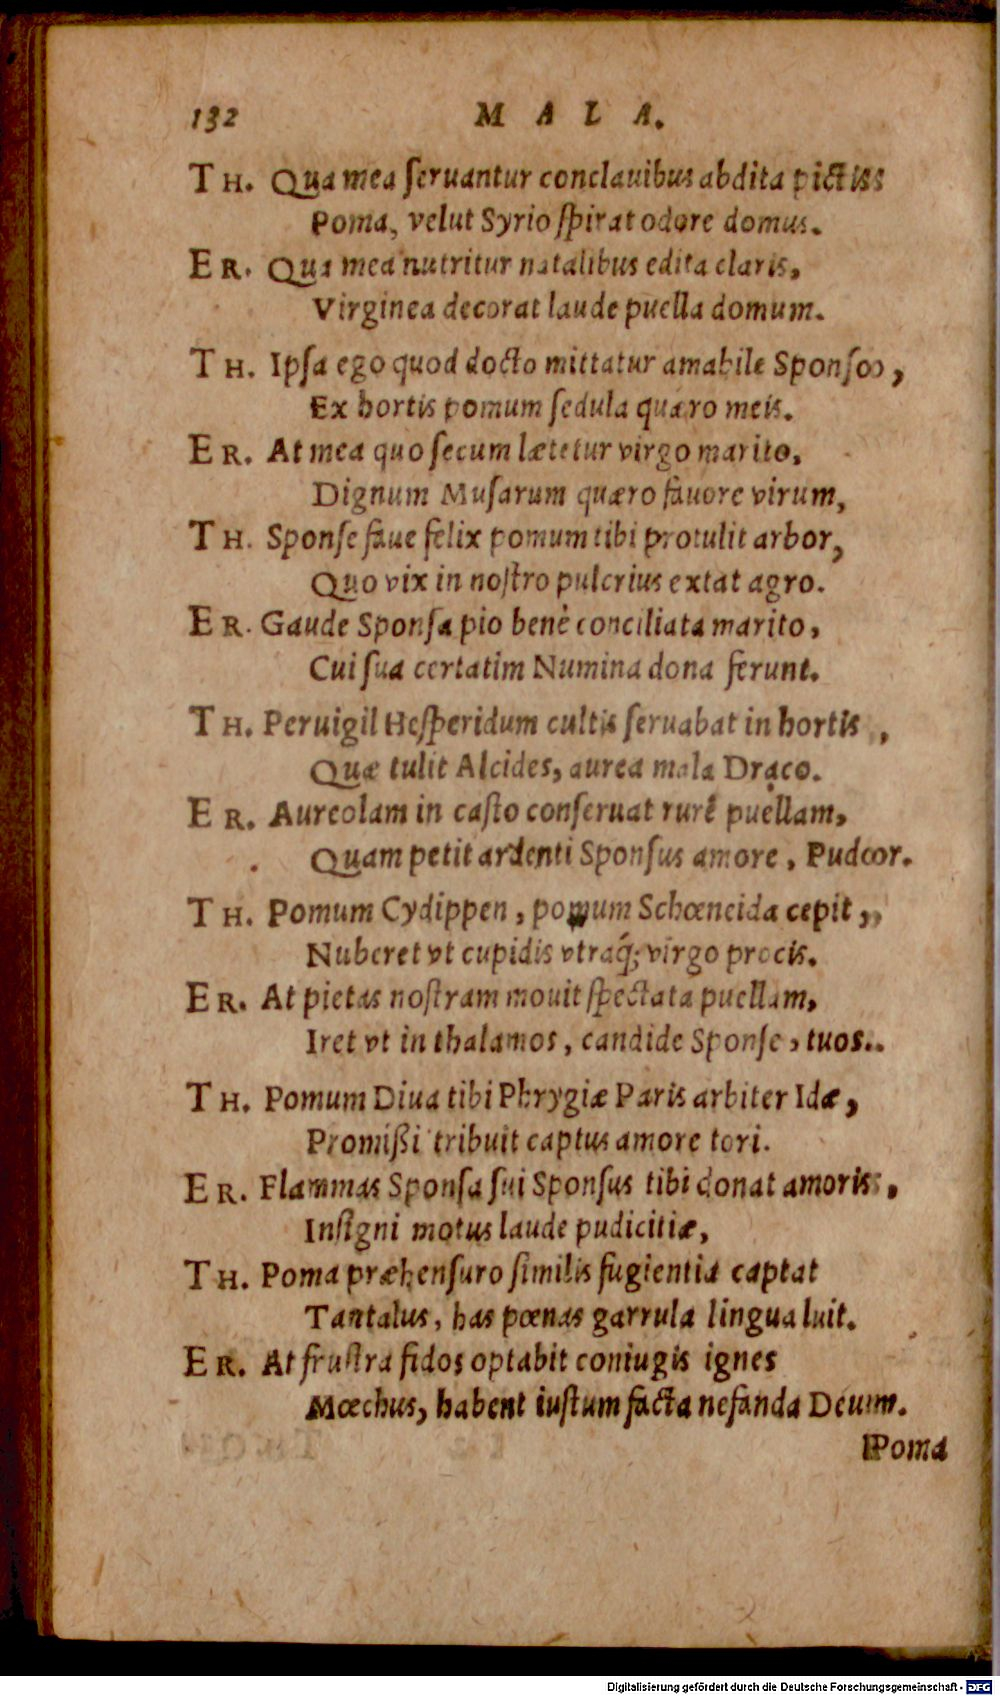 132 MALA.
TH. Qua mea ſeruantur conclauibus abdita pictis
Poma, velut Syrio ſpirat odore domus.
ER. Qua mea nutritur natalibus edita claris,
Virginea decorat laude puella domum.
TH. Ipſa ego quod docto mittatur amabile Sponſo,
Ex hortis pomum ſedula quæro meis.
ER. At mea quo ſecum lætetur virgo marito,
Dignum Muſarum quæro fauore virum,
TH. Sponſe faue felix pomum tibi protulit arbor,
Quo vix in noſtro pulcrius extat agro.
ER. Gaude Sponſa pio benè conciliata marito,
Cui ſua certatim Numina dona ferunt.
TH. Peruigil Heſperidum cultis ſeruabat in hortis,
Quæ tulit Alcides, aurea mala Draco.
ER. Aureolam in caſto conſeruat rure puellam,
Quam petit ardenti Sponſus amore, Pudor.
TH. Pomum Cydippen, pomum Schœneida cepit,
Nuberet vt cupidis vtraq́; virgo procis.
ER. At pietas noſtram mouit ſpectata puellam,
Iret vt in thalamos, candide Sponſe, tuos.
TH. Pomum Diua tibi Phrygiæ Paris arbiter Idæ,
Promißi tribuit captus amore tori.
ER. Flammas Sponſa ſui Sponſus tibi donat amoris,
Inſigni motus laude pudicitiæ,
TH. Poma præhenſuro ſimilis fugientia captat
Tantalus, has pœnas garrula lingua luit.
ER. At fruſtra fidos optabit coniugis ignes
Mœchus, habent iuſtum facta nefanda Deum.
Poma
Digitalisierung gefördert durch die Deutsche Forschungsgemeinschaft - DFG